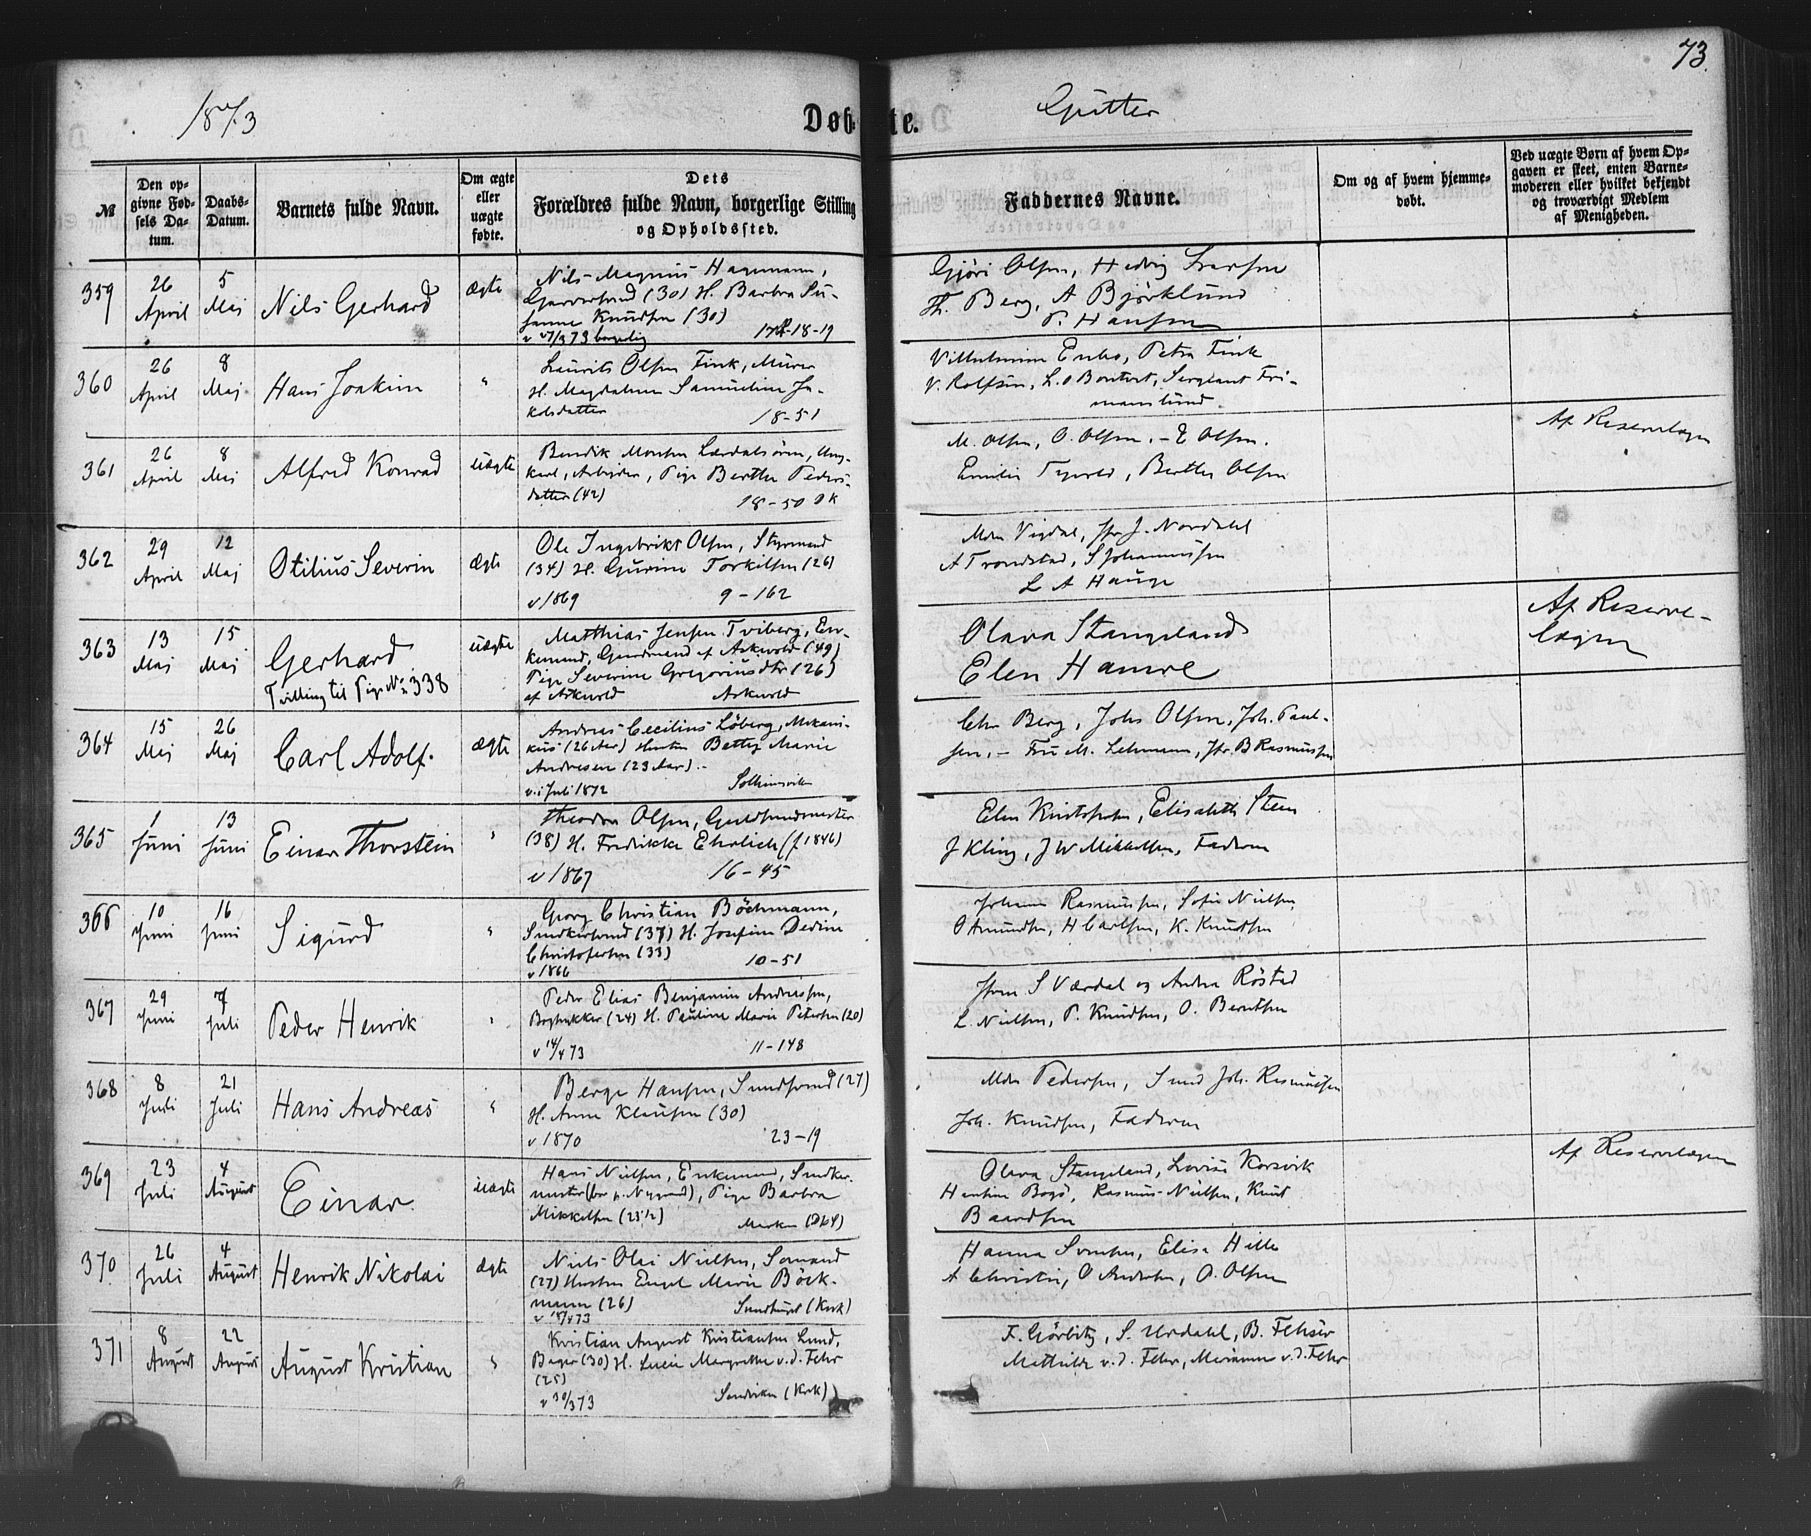 73.
1873
Døbte.
Gutter
№
Den opgivne Fødsels Datum.
Daabs-Datum.
Barnets fulde Navn.
Om ægte eller uægte fødte.
Dets Forældres fulde Navn, borgerlige Stilling og Opholdssted.
Faddernes Navne.
Om og af hvem hjemmedøbt.
Ved uægte Børn af hvem Opgaven er skeet, enten Barnemoderen eller hvilket bekjendt og troværdigt Medlem af Menigheden.
359
26 April
5 Maj
Nils Gerhard
ægte
Nils Magnus Hagemann,
(30) H. Barbra Su-
sanne Knudsen (30)
borgerlig 18-19
Gjøri Olsen, Hedvig
Th. Berg, A Björklund
P. Hansen
360
26 April
8 Maj
Hans Joakim
"
Laurits Olsen Fink, Murer
H. Magdalene Samueline Ja-
kobsdatter 18-51
Petra Fink
V. Rolfsen, Sergeant Fri-
manslund
361
26 April
8 Maj
Alfred Konrad
uægte
Bendik Monsen Lærdalsøren, Ung-
karl, Arbejder, Pige Berthe Peders-
datter (42) 18-50
M. Olsen, O. Olsen, - E Olsen.
Emilie Berthe Olsen
Af Reservelægen
362
29 April
12 Maj
Otilius Severin
ægte
Ole Ingebrikt Olsen, Styrmand
(34) H. Gurine Torkilsen (26)
v 1869 9-162
Mdm Vigdal, Jfr J. Nordahl
A Trondstad, S Johannessen
L A Hauge
363
13 Maj
15 Maj
Gerhard
Tvilling til Pige No 338
uægte
Matthias Jensen Tviberg, En-
kemand, Gaardmand af Askvold (49)
Pige Severine Gregoriusdtr (26)
af Askvold Askvold
Olava Stangeland
Elen Hamre
Af Reserve-
lægen
364
15 Maj
26 Maj
Carl Adolf.
ægte
Andreas Cecilius Løberg, Mekani-
kus (26 Aar) Hustru Betty Marie
Andresen (23 Aar) ..
v. i Juli 1872 Solheimsviken
Chr Berg, Johs Olsen, Joh. Paul-
sen, - Fru M. Lehmann, Jfr. B Rasmussen
365
1 Juni
13 Juni
Einar Thorstein
"
Theodor Olsen, Guldsmedmester
(38) H. Fredrikke Ehrlich (f 1846)
v 1867 16-45
Elen Kristofersen, Elisabeth Steen
J Kling, J W Mikkelsen, Faderen
366
10 Juni
16 Juni
Sigurd
"
Georg Christian Böchmann,
Snedkersvend (37) H. Josefine Dedine
Christofersen (33)
v 1866 10-51
Johanne Rasmussen, Sofie Nielsen,
O Amundsen, H Carlsen, K. Knudsen
367
29 Juni
7 Juli
Peder Henrik
"
Peder Elias Benjamin Andreasen,
Bogtrykker (24) H. Pauline Marie Petersen (20)
v 14/4 73 11-148
S Værdal og Andrea Röstad
L. Nielsen, P. Knudsen, O. Berntsen
368
8 Juli
21 Juli
Hans Andreas
"
Berge Hansen, Smedsvend (27)
H. Anne Klausen (30)
v 1870 23-19
Mdm Pedersen, Smed Joh. Rasmussen
Joh. Knudsen, Faderen
369
23 Juli
4 August
Einar
uægte
Hans Nielsen, Enkemand, Snedker-
mester, Pige Barbra
Mikkelsen (23 1/2)
Olava Stangeland, Lovise Korsvik
Rasmus Nielsen, Knut
Baardsen
Af Reservelægen
370
26 Juli
4 August
Henrik Nikolai
ægte
Niels Olai Nielsen, Sømand
(27) Hustru Engel Marie Böck-
mann (26)
Hanna Svensen, Elise Hille
O Andersen, O. Olsen
371
8 August
22 August
August Kristian
"
Kristian August Kristiansen Lund,
Bager (30) H. Lucie Margrethe v. d. Fehr
(25)
v 30/3 73 Sandviken (Kirk)
F. Görbitz, S. Urdahl, B. Fehr
Mathilde v. d. Fehr, Marianne v. d. Fehr